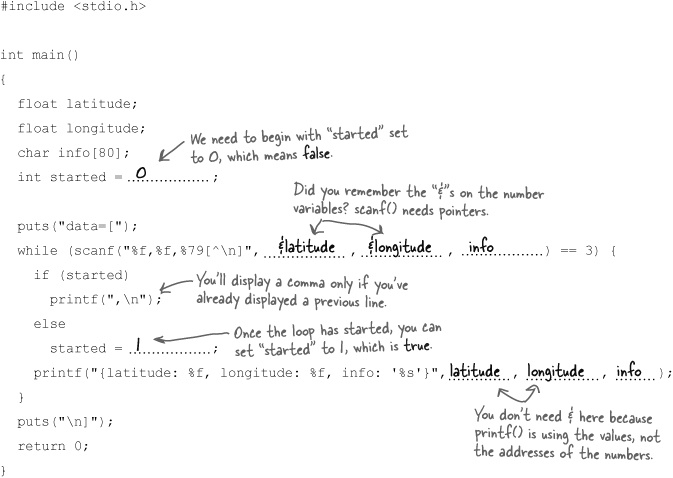 #include <stdio.h>
int main()
{
float latitude;
float longitude;
char info[80];
We need to begin with "started" set
to 0, which means false.
int started = 0 ;
Did you remember the "&"s on the number
variables? scanf() needs pointers.
puts("data=[");
while (scanf("%f,%f,%79[^\n]", &latitude , &longitude , info ) == 3) {
if (started)
printf(",\n");
You'll display a comma only if you've
already displayed a previous line.
else
started = 1 ;
Once the loop has started, you can
set "started" to 1, which is true.
printf("{latitude: %f, longitude: %f, info: '%s'}", latitude , longitude , info );
}
You don't need & here because
printf() is using the values, not
the addresses of the numbers.
puts("\n]");
return 0;
}